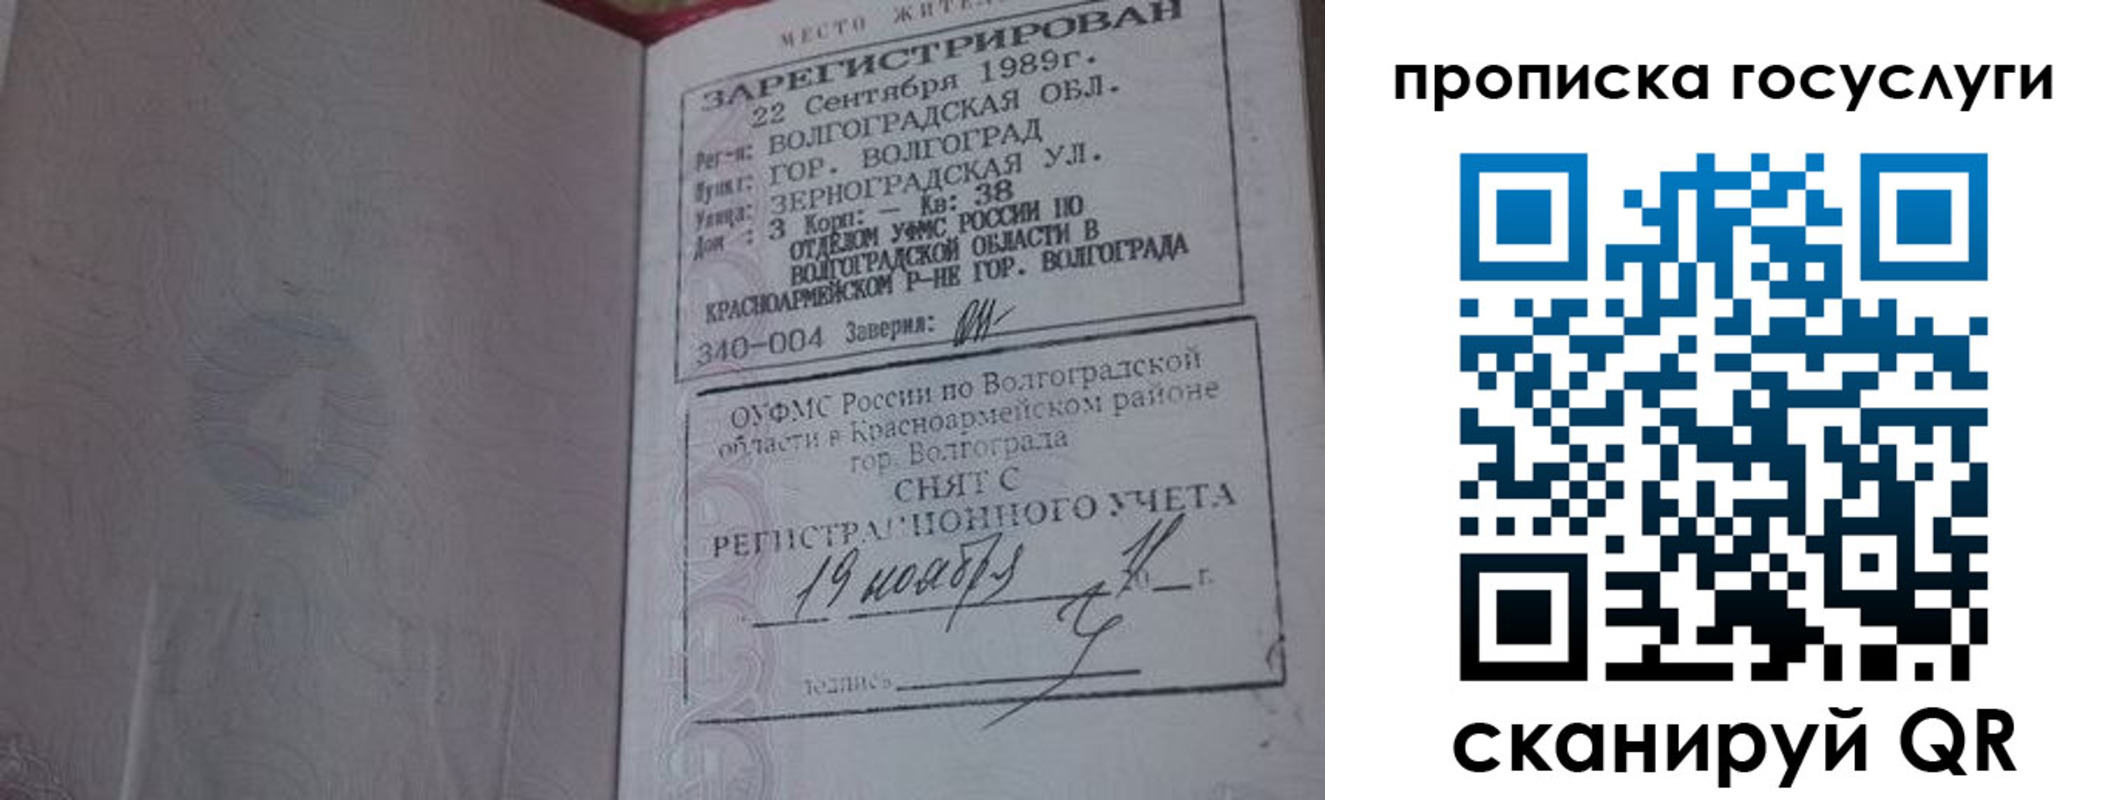 МЕСТО ЖИТЕЛ
ЗАРЕГИСТРИРОВАН
22 Сентября 1989г.
Рег-н: ВОЛГОГРАДСКАЯ ОБЛ.
Пункт: ГОР. ВОЛГОГРАД
Улица: ЗЕРНОГРАДСКАЯ УЛ.
Дом : 3 Корп: — Кв: 38
ОТДЕЛОМ УФМС РОССИИ ПО
ВОЛГОГРАДСКОЙ ОБЛАСТИ В
КРАСНОАРМЕЙСКОМ Р-НЕ ГОР. ВОЛГОГРАДА
340-004 Заверил:
ОУФМС России по Волгоградской
области в Красноармейском районе
гор. Волгограда
СНЯТ С
РЕГИСТРАЦИОННОГО УЧЕТА
19 ноября 20 г.
подпись
прописка госуслуги
сканируй QR